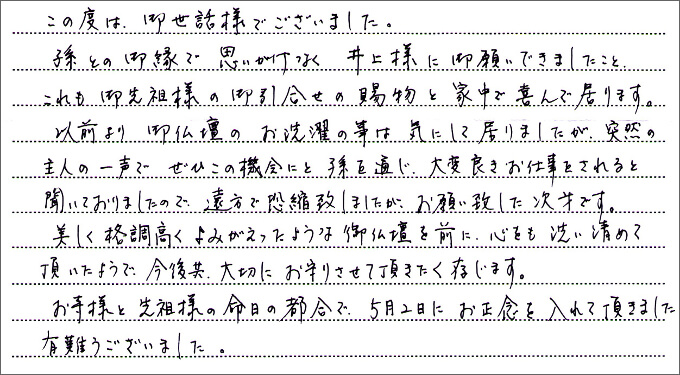 この度は、御世話様でございました。
孫との御縁で思いがけなく 井上様に御願いできましたこと、
これも御先祖様の御引合せの賜物と家中で喜んで居ります。
以前より御仏壇のお洗濯の事は気にして居りましたが、突然の
主人の一声でぜひこの機会にと孫を通じ、大変良きお仕事をされると
聞いておりましたので、遠方で恐縮致しましたが、お願い致した次才です。
美しく格調高くよみがえったような御仏壇を前に、心をも洗い清めて
頂いたようで、今後共、大切にお守りさせて頂きたく存じます。
お寺様と先祖様の命日の都合で、5月2日にお正念を入れて頂きました
有難うございました。